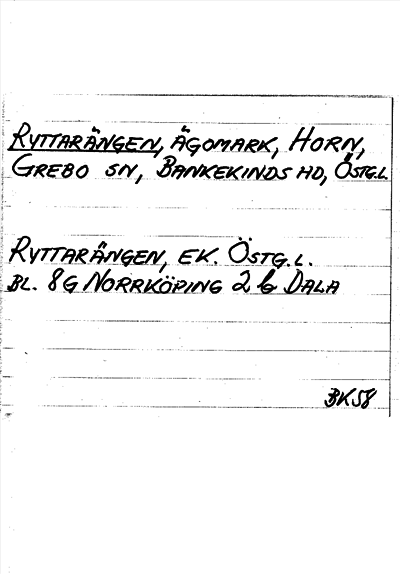 RYTTARÄNGEN, ÄGOMARK, HORN,
GREBO SN, BANKEKINDS HD, ÖSTG.L.
RYTTARÄNGEN, EK. ÖSTG.L.
BL. 8G NORRKÖPING 2 b DALA
BK58